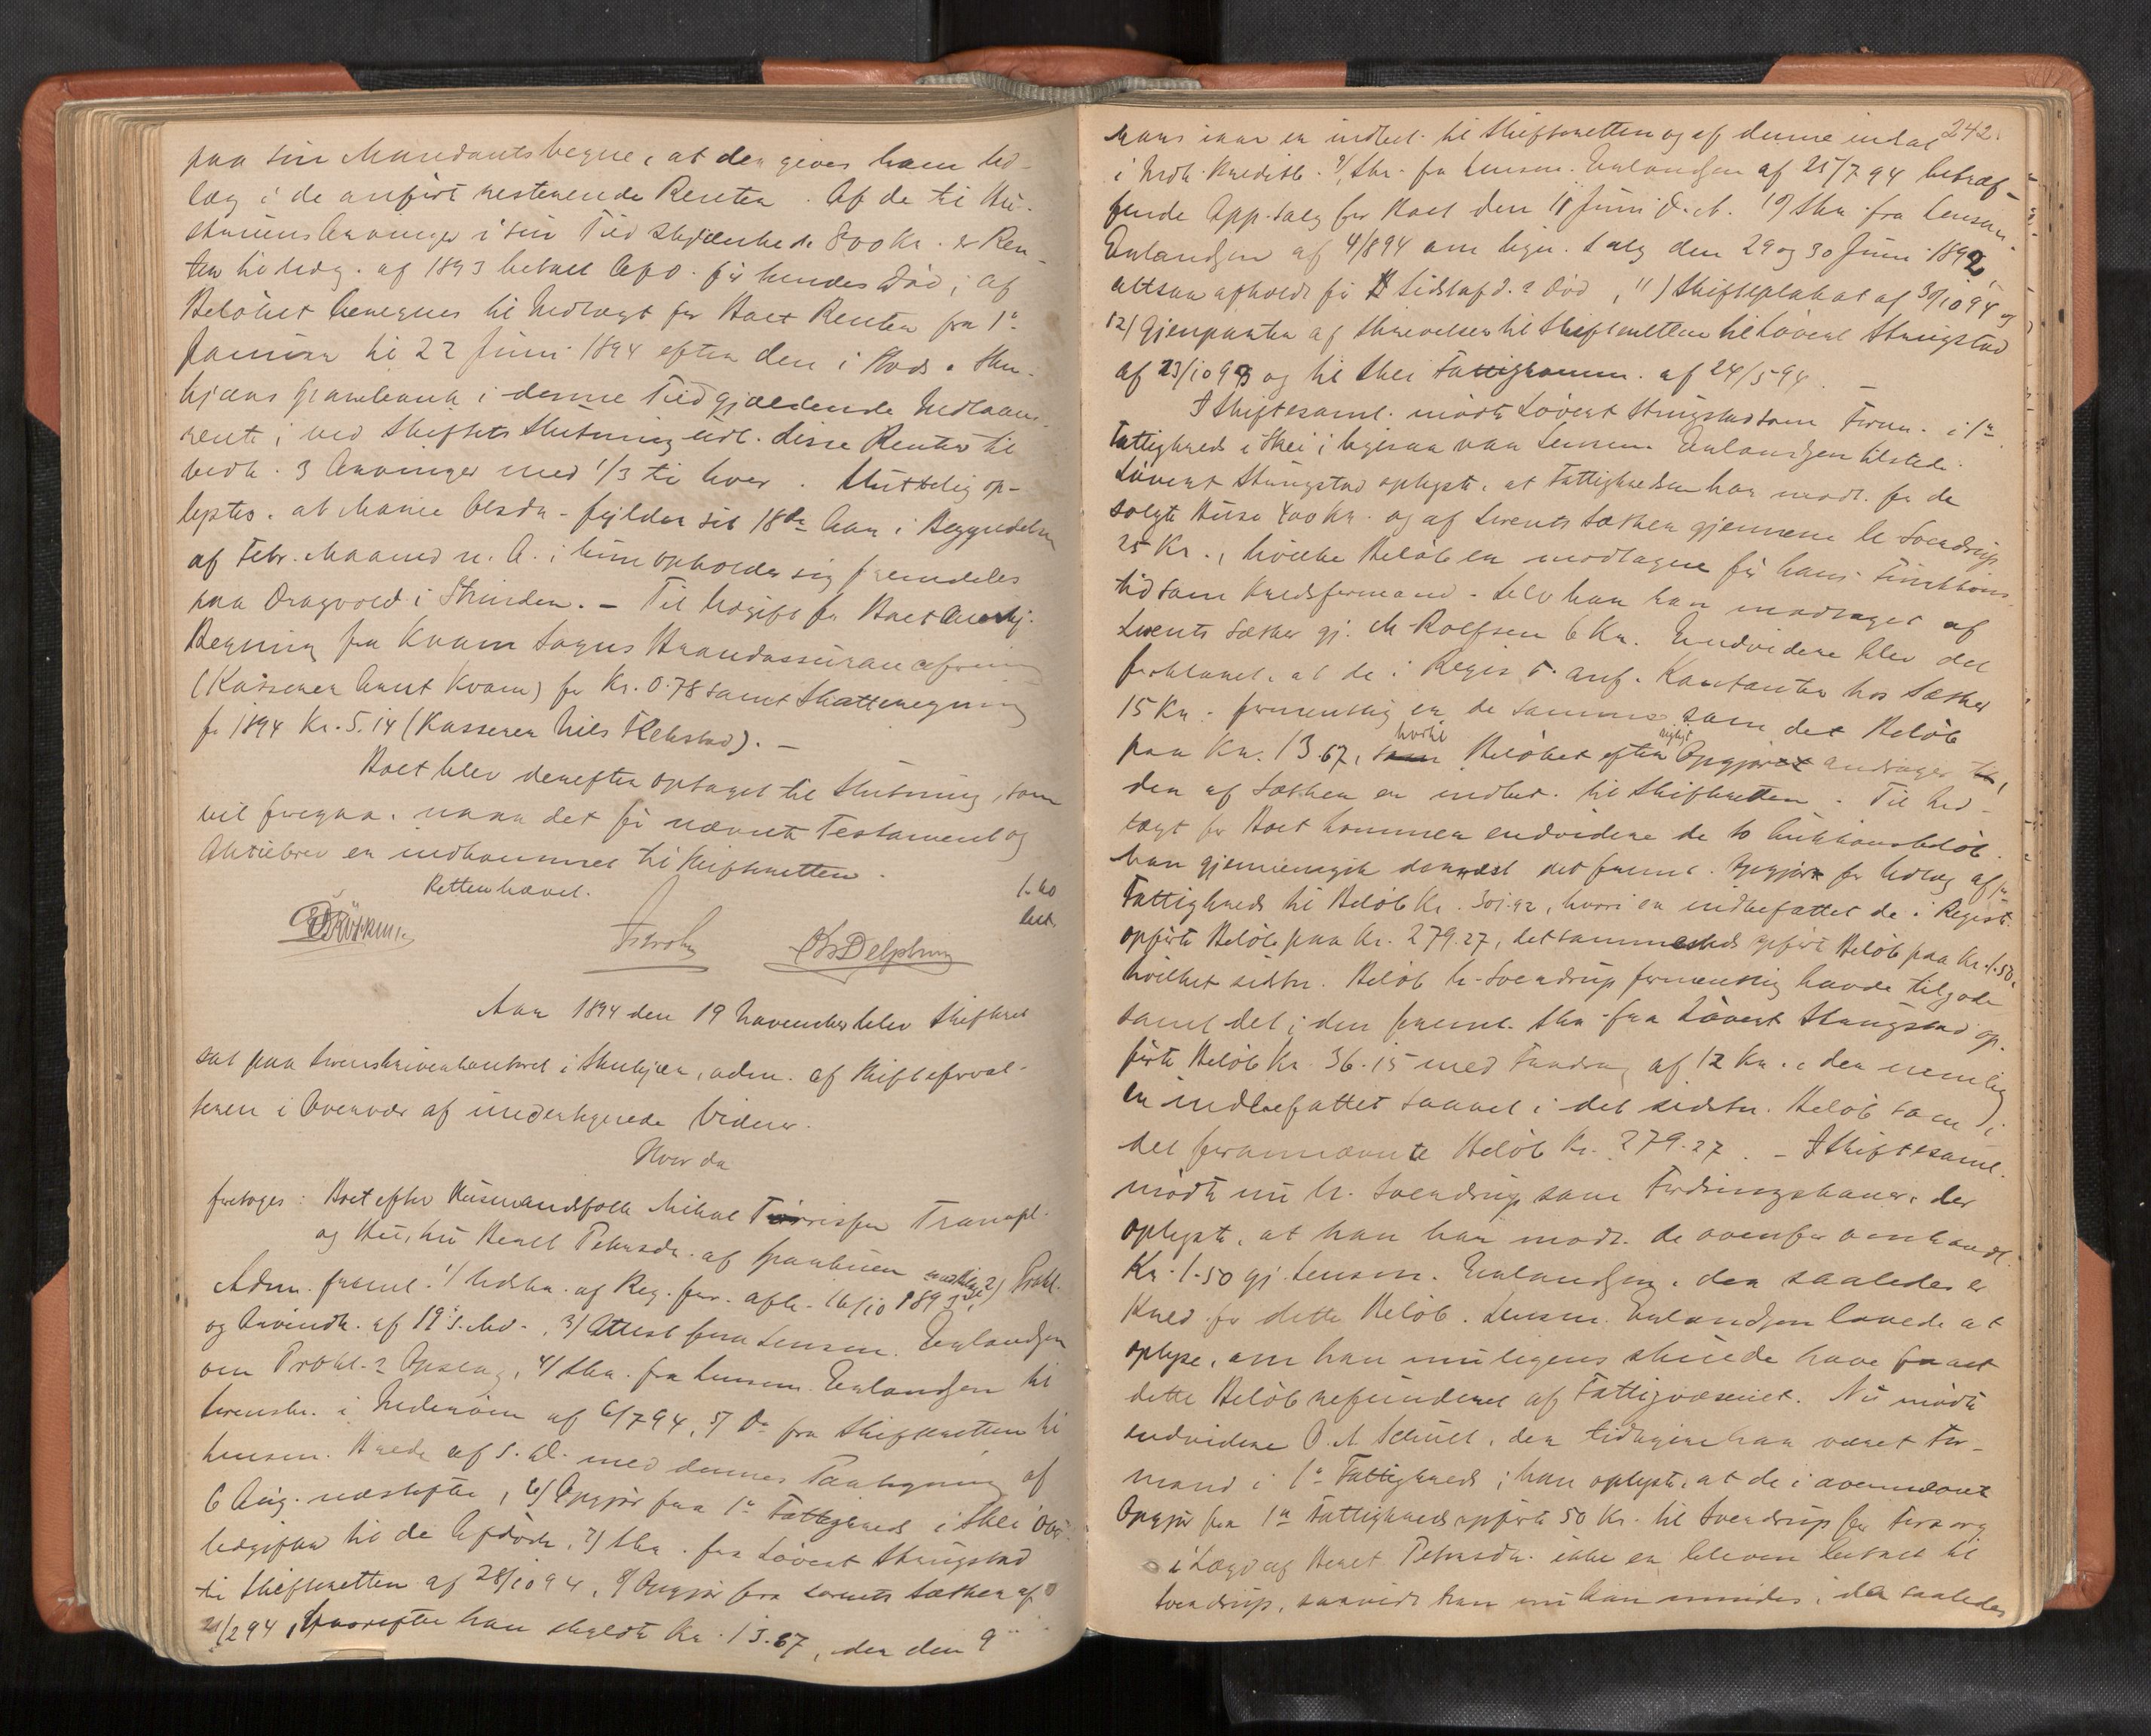 paa sin Mandants vegne, at der gives ham Ud-
læg i de anførte resterende Renter. Af de til Hu-
struens Arvinger i sin Tid skjænkede 800 Kr. er Ren-
ter til Udg. af 1893 betalt før hendes Død; af
Beløbet beregnes til Indtægt for Boet Renter fra 1ste
Januar til 22 Juni 1894 efter den i Stenkjær
Sparebank i denne Tid gjældende Indlaans-
rente; ved Skiftets Slutning udl. disse Renter til
vedk. 3 Arvinger med 1/3 til hver. Sluttelig op-
lystes, at Marie Olsdr. fylder sit 18de Aar i Begyndelsen
af Febr. Maaned n. A.; hun opholder sig fremdeles
paa Dragvold i Strinden. – Til Udgift for Boet
Regning fra Kvam Sogns Brandassuranceforening
(Kasserer Kvam) for Kr. 0.78 samt Skatteregning
for 1894 Kr. 5.14 (Kasserer Nils). –
Boet blev derefter optaget til Slutning, som
vil foregaa, naar det før nævnte Testament og
Aktiebrev er indkommet til Skifteretten.
Retten hævet.
Aar 1894 den 19 November blev Skifteret
sat paa Sorenskriverkontoret i Stenkjær, adm. af Skifteforval-
teren i Overvær af undertegnede Vidner.
Hvor da
foretoges: Boet efter Husmandsfolk Mikal Tørrissen Tranapl.
og Hustru Beret Petersdr. af Graabruen
Adm. freml. 1) Udskr. af Reg. forr. afh. 16/10 1893, 2) Prokl.
og Avisudk. af 19 s. Md., 3) Attest fra Lensm. Erlandsen
om Prokl.s Opslag, 4) Skr. fra Lensm. Erlandsen til
Sorenskr. i Inderøen af 6/7 94, 5) Do fra Skifteretten til
Lensm. af s. D. med dennes Paategning af
6 Aug. næstefter, 6) Opgjør fra 1ste Fattigkreds i Skei over
Udgifter til de Afdøde, 7) Skr. fra Løvert Skrugstad
til Skifteretten af 28/10 94, 8) Opgjør fra Lorents Sæther af
21/2 94, hvorefter han skyldte Kr. 13.67, der den 9
242.
i Indh. 9) Skr. fra Lensm. Erlandsen af 25/7 94 betræf-
fende Salg for Boet den 11 Juni d. A. 10) Skr. fra Lensm.
Erlandsen af 4/8 94 om lign. Salg den 29 og 30 Juni 1892,
altsaa afholdt før sidstafd.s Død, 11) Skifteplakat af 30/10 94 og
12) Gjenparter af Skrivelser til Skifteretten til Løvert Skrugstad
af 23/10 93 og til Skei Fattigkomm. af 24/5 94. –
I Skiftesaml. mødte Løvert Skrugstad som Form. i 1ste
Fattigkreds i Skei; ligesaa var Lensm. Erlandsen tilstede.
Løvert Skrugstad oplyste, at Fattigkredsen har modt. for de
solgte Huse 400 Kr. og af Lorents Sæther gjennem Hr. Svendrup
25 Kr., hvilke Beløb er modtagne før hans Funktions-
tid som Kredsformand. Selv har han modtaget af
Lorents Sæther gj. M. Rolfsen 6 Kr. Endvidere blev det
forklaret, at de i Regis t. anf. Kontanter hos Sæther
15 Kr. formentlig er de samme som det Beløb
paa Kr. 13.67, hvortil Beløbet efter Opgjøret andrager,
der af Sæther er indbet. til Skifteretten. Til Ind-
tægt for Boet kommer endvidere de to Auktionsbeløb.
Man gjennemgik dernæst det freml. Opgjør for Udlæg af 1ste
Fattigkreds til Beløb Kr. 301.92, hvori er indbefattet de i Registr.
opførte Beløb paa Kr. 279.27, det sammesteds opført Beløb paa Kr. 1.50,
hvilket sidstn. Beløb Hr. Svendrup formentlig havde tilgode
samt det i den freml. Skr. fra Løvert Skrugstad op-
førte Beløb Kr. 36.15 med Fradrag af 12 Kr., der nemlig
er indbefattet saavel i det sidstn. Beløb som i
det forannævnte Beløb Kr. 279.27. – I Skiftesaml.
mødte nu Hr. Svendrup som Fordringshaver, der
oplyste, at han har modt. de ovenfor omhandl.
Kr. 1.50 gj. Lensm. Erlandsen, der saaledes er
Kred. for dette Beløb. Lensm. Erlandsen lovede at
oplyse, om han muligens skulde have faaet
dette Beløb refunderet af Fattigvæsenet. Nu mødte
endvidere O. A. Schult, der tidligere har været For-
mand i 1ste Fattigkreds; han oplyste, at de i ovennævnte
Opgjør fra 1ste Fattigkreds opførte 50 Kr. til Svendrup for Forsorg
i Lægd af Beret Petersdr. ikke er bleven betalt til
Svendrup, saavidt han nu kan mindes, der saaledes